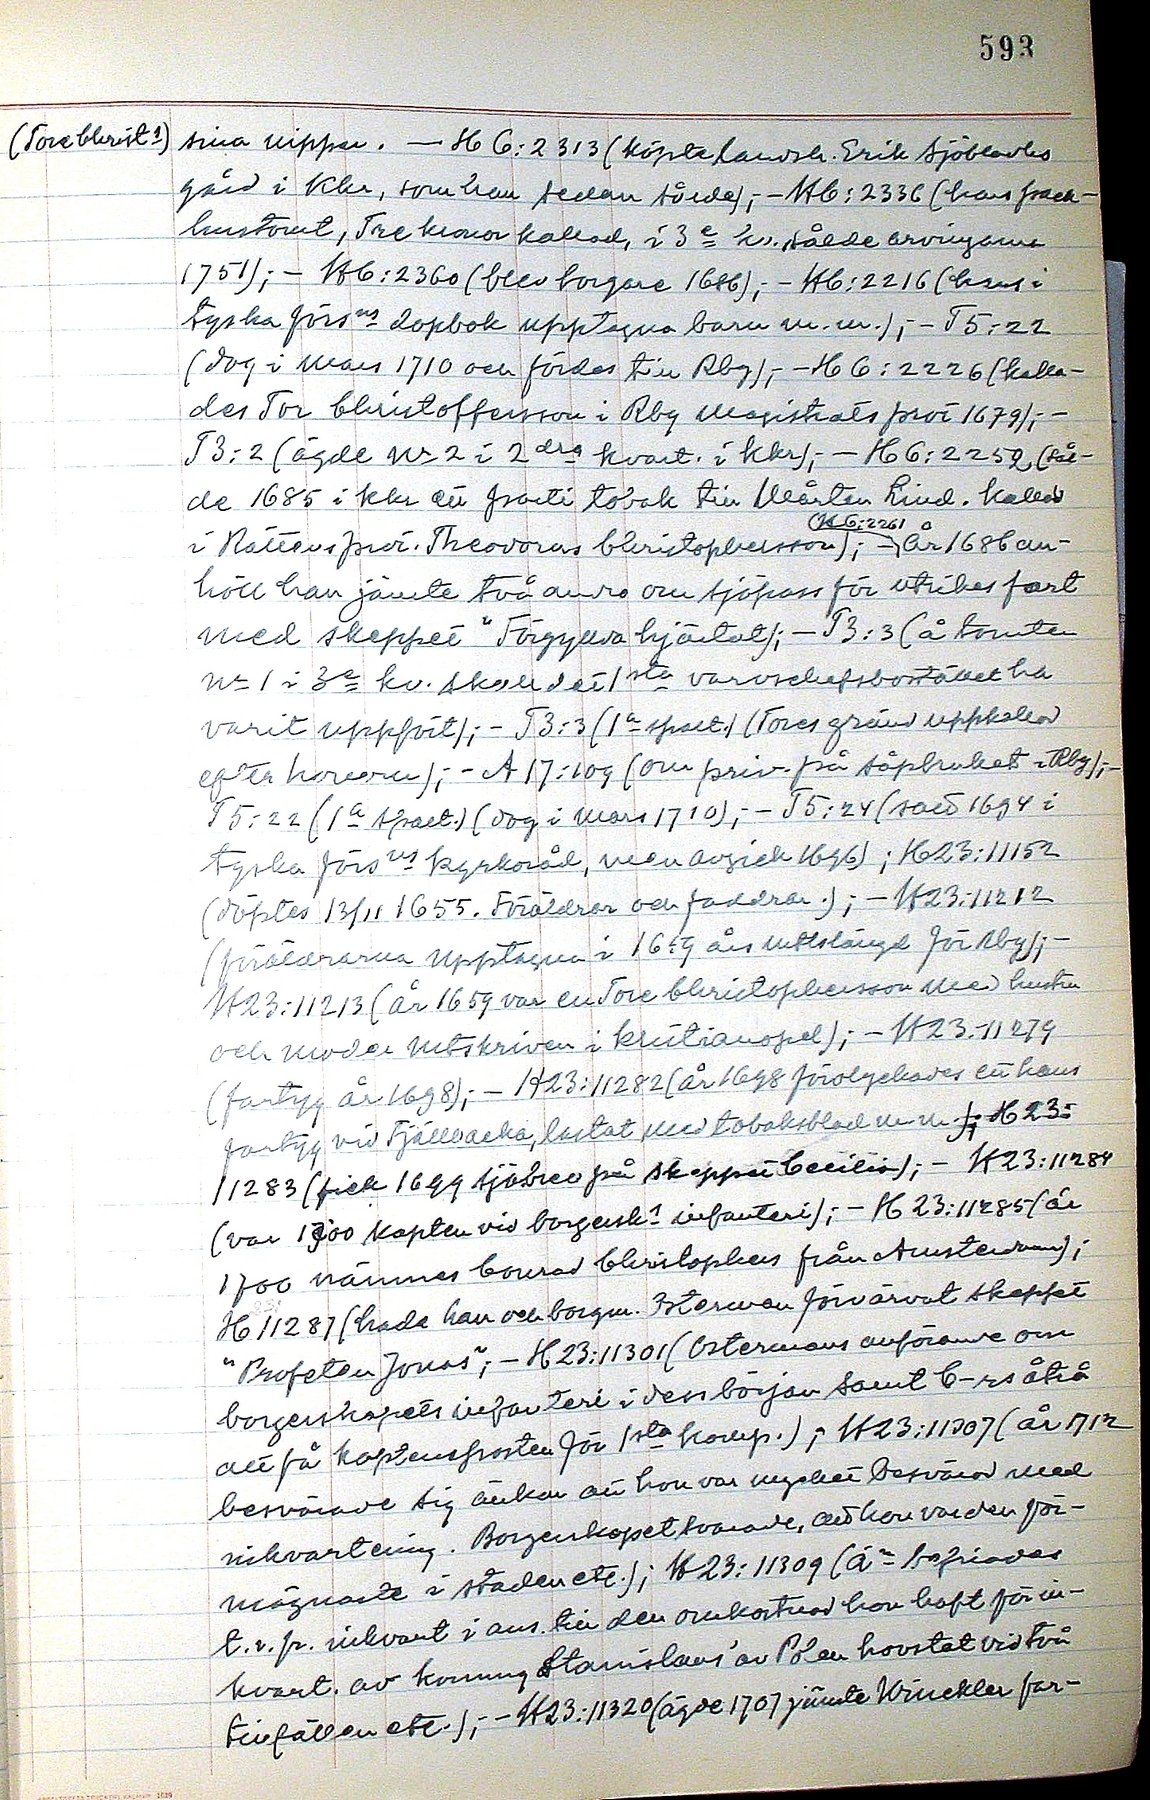 593
(Tore Christ:s) sina nipper. — H 6: 2313 (köpte landsh. Erik Sjöblads
gård i Khr, som han sedan sålde); – H6: 2336 (hans pack-
hustomt, Tre kronor kallad, i 3e kv. sålde arvingarne
1751); – H6: 2360 (blev borgare 1686); – H6: 2216 (hans i
tyska förs:ns dopbok upptagna barn m.m.); – T5: 22
(dog i mars 1710 och fördes till Rby); – H 6: 2226 (kalla-
des Tor Christoffersson i Rby Magistrats prot 1679); –
T3: 2 (ägde Nr 2 i 2dra kvart. i Kkr); – H6: 2252 (sål-
de 1685 i Kkr ett parti tobak till Mårten Lind. Kallad
i Rättens prot. Theodorus Christophersson); – (H6: 2261 År 1686 an-
höll han jämte två andra om sjöpass för utrikes fart
med skeppet "Förgyllda hjärtat); – T3: 3 (å tomten
Nr 1 i 3e kv. skall det 1sta varvschefsbostället ha
varit uppfört); – T3: 3 (1a spalt.) (Tores gränd uppkallad
efter honom); – A 17: 109 (om priv. på såpbruket i Rby); –
T5: 22 (1a spalt.) (dog i mars 1710); – T5: 24 (satt 1694 i
tyska förs:ns kyrkoråd, men avgick 1696); H23: 11152
(döptes 13/11 1655. Föräldrar och faddrar.); – H23: 11212
(föräldrarna upptagna i 1659 års mtlslängd för Rby); –
H23: 11213 (år 1659 var en Tore Christophersson med hustru
och moder mtlskriven i Kristianopel); – H23: 11279
(fartyg år 1698); – H23: 11282 (år 1698 förolyckades ett hans
fartyg vid Fjällbacka, lastat med tobaksblad m.m.); H 23:
11283 (fick 1699 sjöbrev på skeppet Cecilia); – H23: 11284
(var 1700 kapten vid borgersk:s infanteri); – H 23: 11285 (år
1700 nämnes Conrad Christophers från Amsterdam);
H 11287 (hade han och borgm. Osterman förvärvat skeppet
"Profeten Jonas"; – H23: 11301 (Ostermans anförande om
borgerskapets infanteri i dess början samt C–rs åtrå
att få kaptensposten för 1sta komp.); – H23: 11307 (år 1712
besvärade sig änkan att hon var mycket besvärad med
inkvartering. Borgerskapet svarade, att hon var den för-
mögnaste i staden etc.); H23: 11309 (Än befriades
t.v. fr. inkvart i ans. till den omkostnad hon haft för in-
kvart. av konung Stanislaus' av Polen hovstat vid två
tillfällen etc.); – H23: 11320 (ägde 1707 jämte Winckler far-